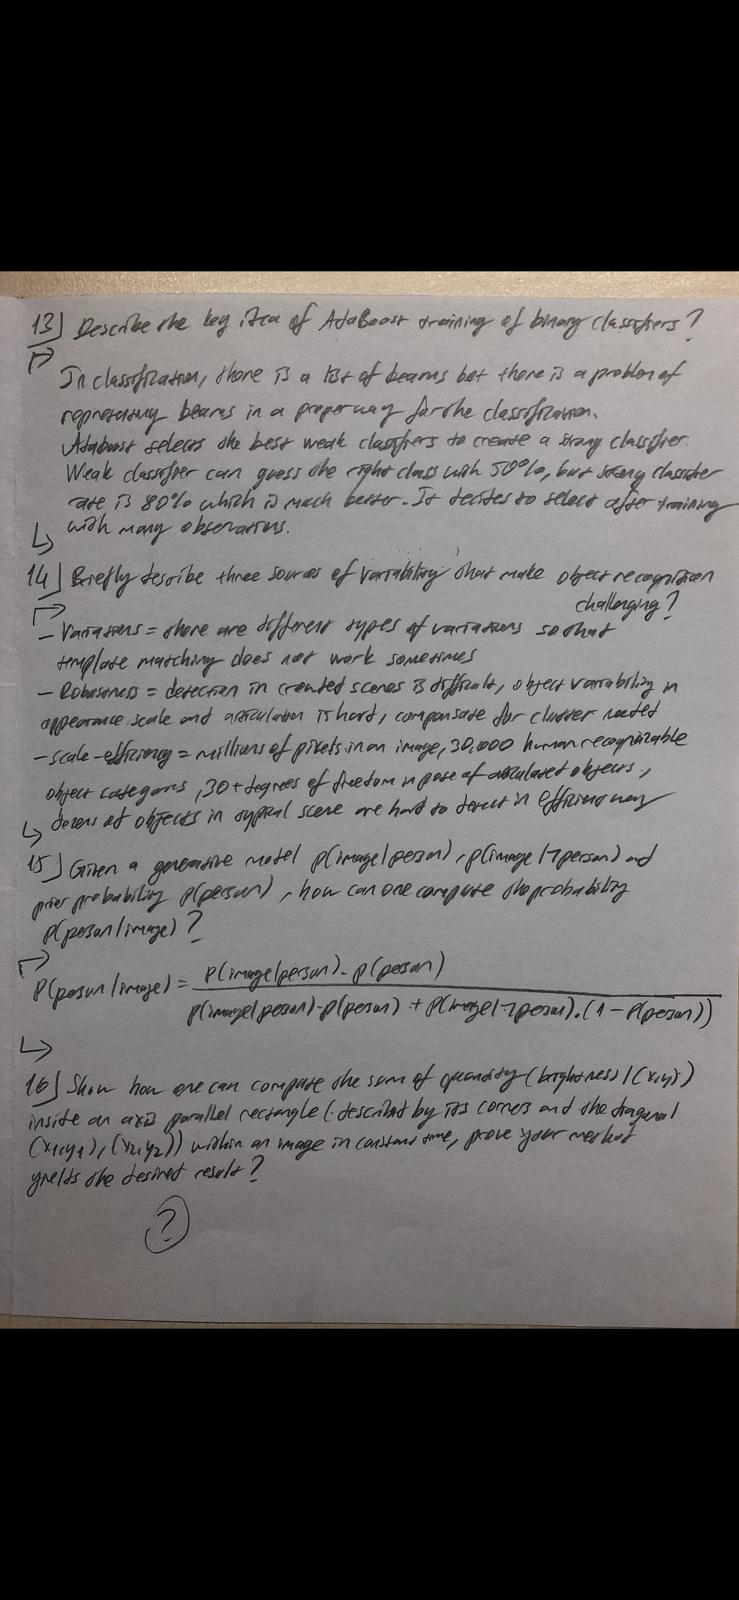 13) Describe the key idea of AdaBoost training of binary classifiers?
In classification, there is a list of beams but there is a problem of
representing beams in a proper way for the classification.
Adaboost selects the best weak classifiers to create a strong classifier.
Weak classifier can guess the right class with 50%, but strong classifier
rate is 80% which is much better. It decides to select after training
with many observations.
14) Briefly describe three sources of variability that make object recognition
challenging?
- Variations = there are different types of variations so that
template matching does not work sometimes
- Robustness = detection in crowded scenes is difficult, object variability in
appearance scale and articulation is hard, compensate for clutter needed
- scale-efficiency = millions of pixels in an image, 30,000 human recognizable
object categories, 30+ degrees of freedom in pose of articulated objects,
dozens of objects in typical scene are hard to detect in efficient way
15) Given a generative model p(image|person), p(image|¬person) and
prior probability p(person), how can one compute the probability
p(person|image)?
P(person|image) = p(image|person) · p(person)
p(image|person) · p(person) + p(image|¬person) · (1 - p(person))
16) Show how one can compute the sum of quantity (brightness) I(x,y)
inside an axis parallel rectangle (described by its corners and the diagonal
(x1,y1), (x2,y2)) within an image in constant time, prove your method
yields the desired result?
?